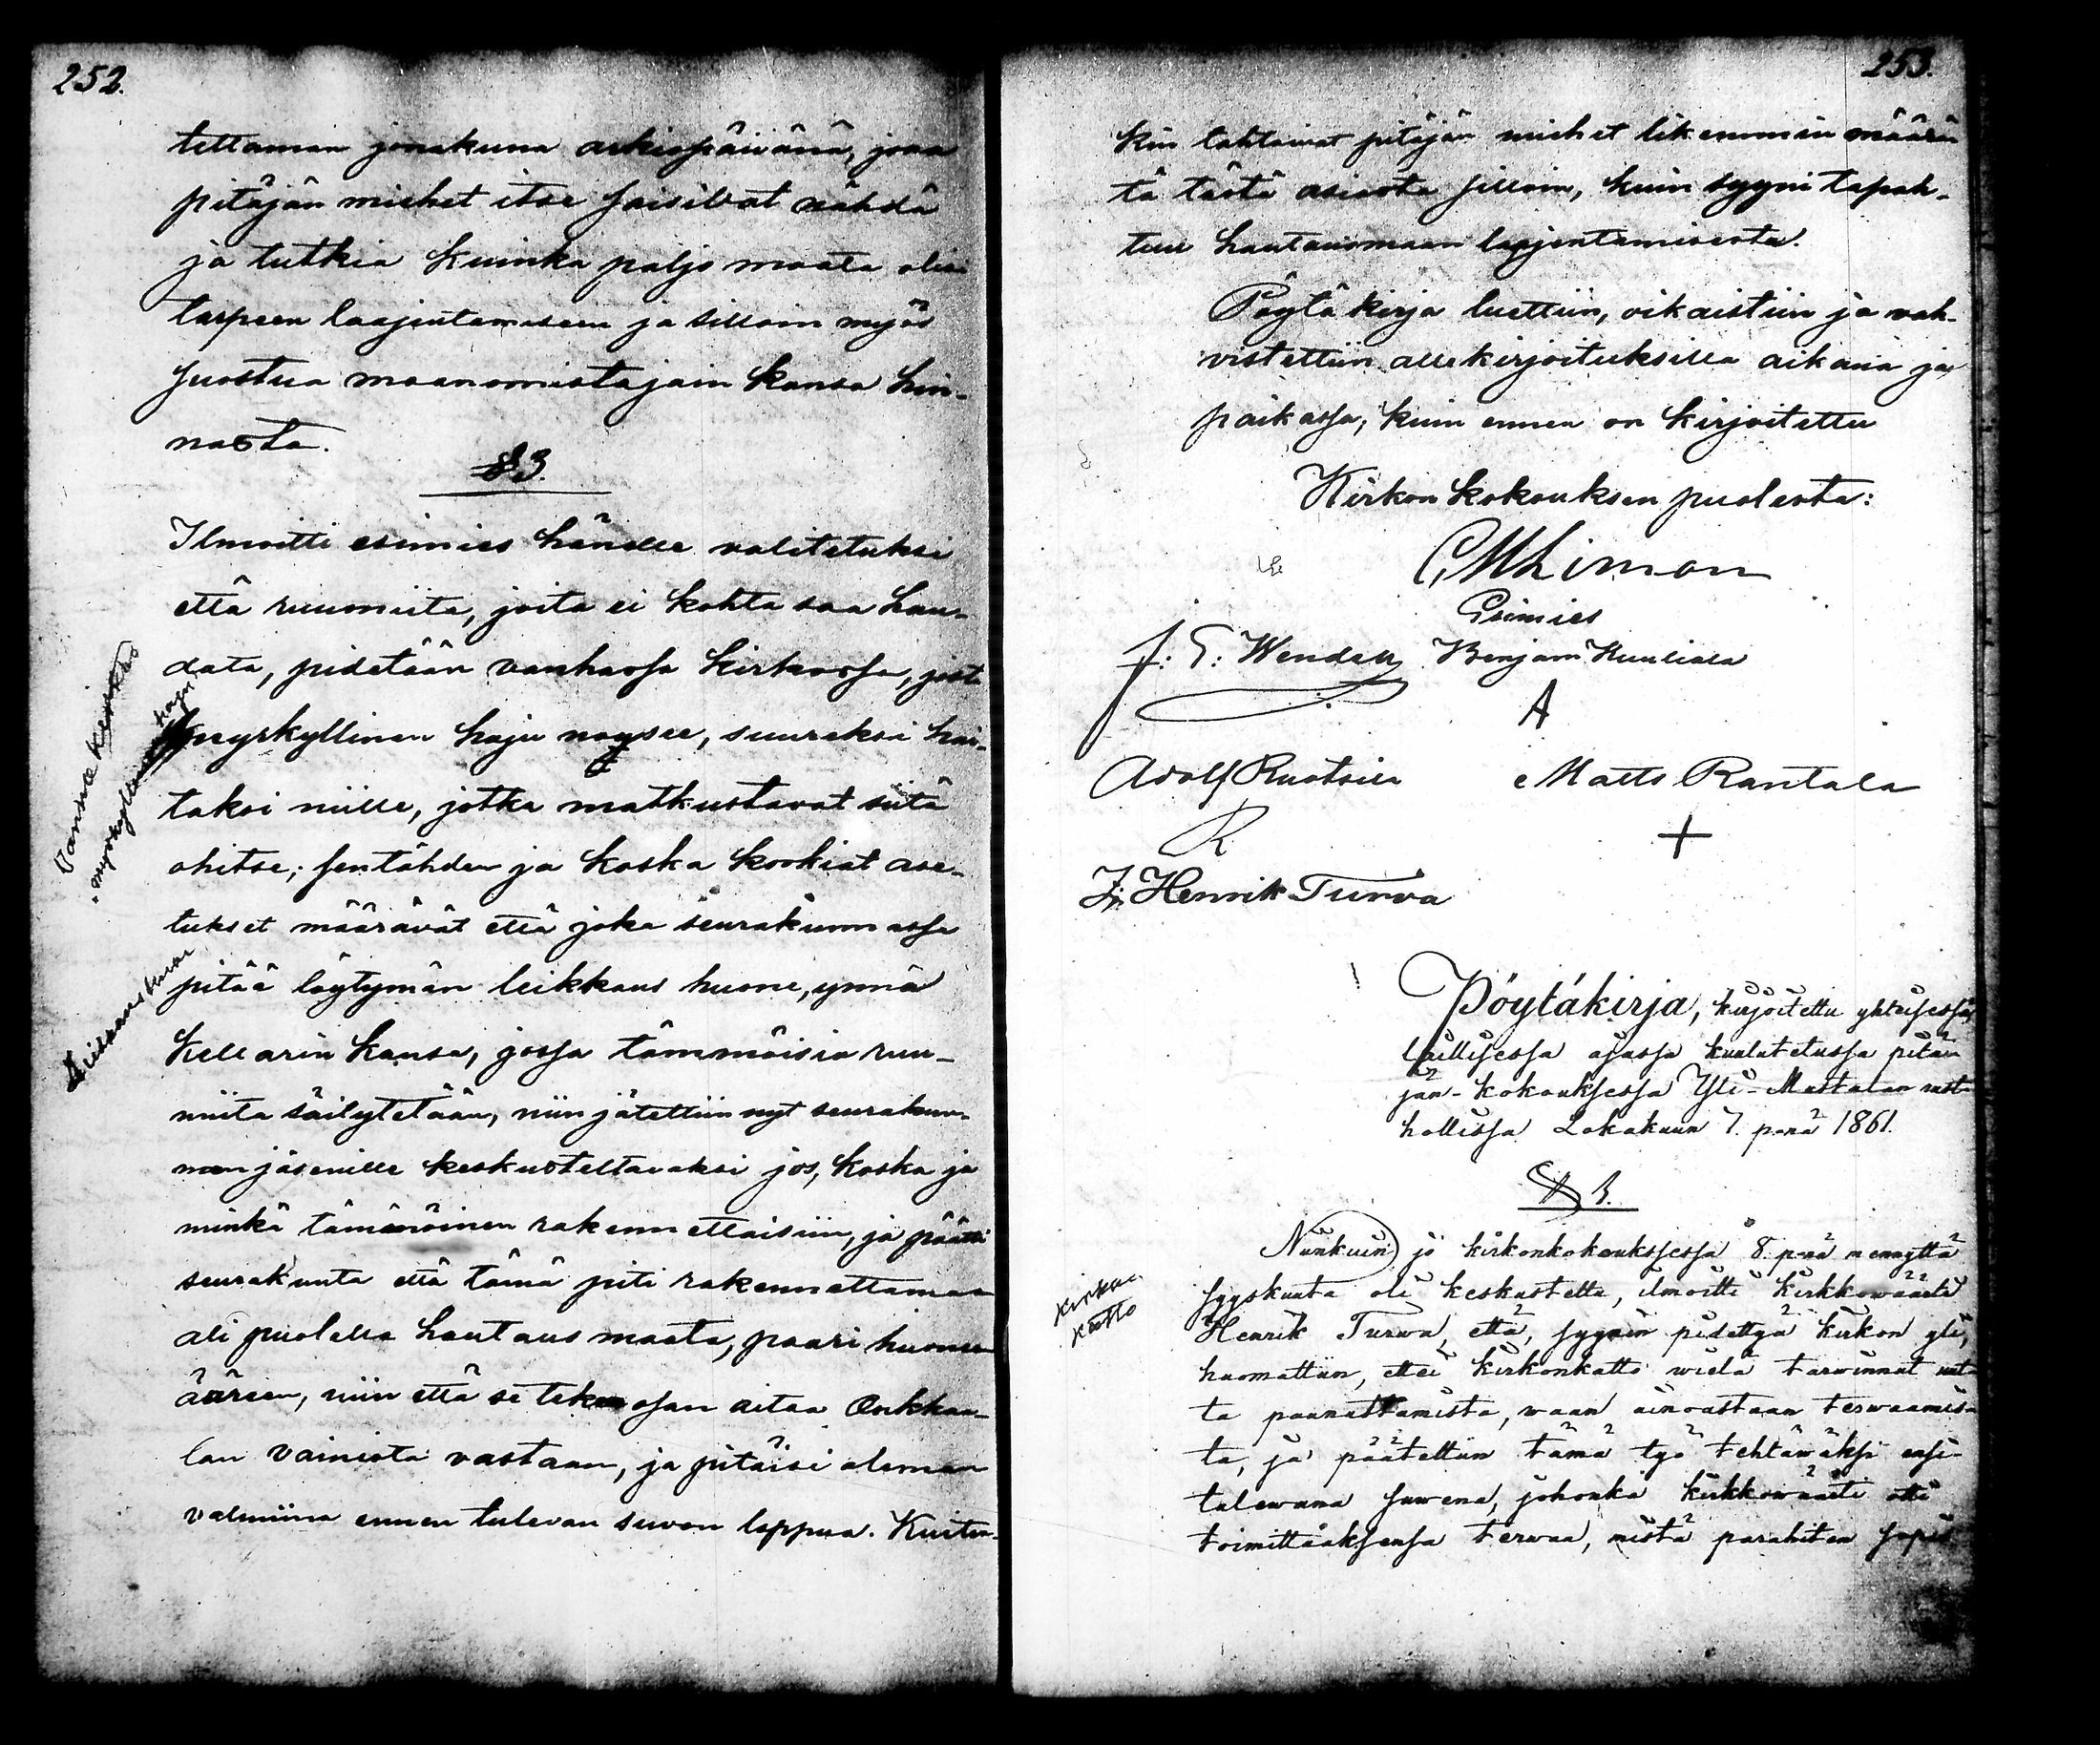 252.
tettaman jonakuna arkiopäivänä, jona
pitäjän miehet itse saisivat nähdä
ja tutkia kuinka paljo maata olisi
tarpeen laajentamiseen ja silloin myös
suostua maanomistajain kansa hin-
nasta.
§ 3.
Ilmoitti esimies hänelle valitetuksi
että ruumiita, joita ei kohta saa hau-
data, pidetään vanhassa kirkossa, josta
myrkyllinen haju nousee, suureksi hai-
taksi niille, jotka matkustavat siitä
ohitse; sentähden ja koska korkiat ase-
tukset määrävät että joka seurakunnassa
pitää löytymän leikkaus huone, ynnä
kellarin kansa, jossa tämmöisia ruu-
miita säilytetään, niin jätettiin nyt seurakun-
nan jäsenille keskusteltavaksi jos, koska ja
minkä tämänöinen rakennettaisiin, ja päätti
seurakunta että tämä piti rakennettaman
ali puolella hautausmaata, paari huoneen
ääreen, niin että se tekee osan aitaa Onkkaa-
lan vainiota vastaan, ja pitäisi oleman
valmiina ennen tulevan suven loppua. Kuiten-
Vanha kirkko
myrkyllinen haju
Leikkaus huone
253.
kin tahtoivat pitäjän miehet likemmin määrä-
tä tästä asiasta silloin, kuin syyni tapah-
tuu hautausmaan laajentamisesta.
Pöytäkirja luettiin, oikaistiin ja vah-
vistettiin allekirjoituksilla aikana ja
paikassa, kuin ennen on kirjoitettu
Kirkon kokouksen puolesta:
C M Limon
Esimies
J: E: Wendell Benjam Kuuliala
A
Adolf Ruotsila Matts Rantala
R +
Henrik Turva
Pöytäkirja, kirjoitettu yhteisessä,
laillisessa ajassa kuulutetussa pitä-
jän-kokouksessa Yli-Mustalan rust-
hollissa Lokakuun 7. p:nä 1861.
§ 1.
Niinkuin jo kirkonkokouksessa 8. p:nä mennyttä
syyskuuta oli keskustettu, ilmoitti kirkkowäärti
Henrik Turwa, että, syyniä pidettyä kirkon yli,
huomattiin, ettei kirkonkatto wielä tarwinnut uut-
ta paanuttamista, waan ainoastaan terwaamis-
ta, ja päätettiin tämä työ tehtäwäksi ensi-
tulewana suwena, johonka kirkkowäärti otti
toimittaaksensa terwaa, mistä parahiten sopis
Kirkon
katto